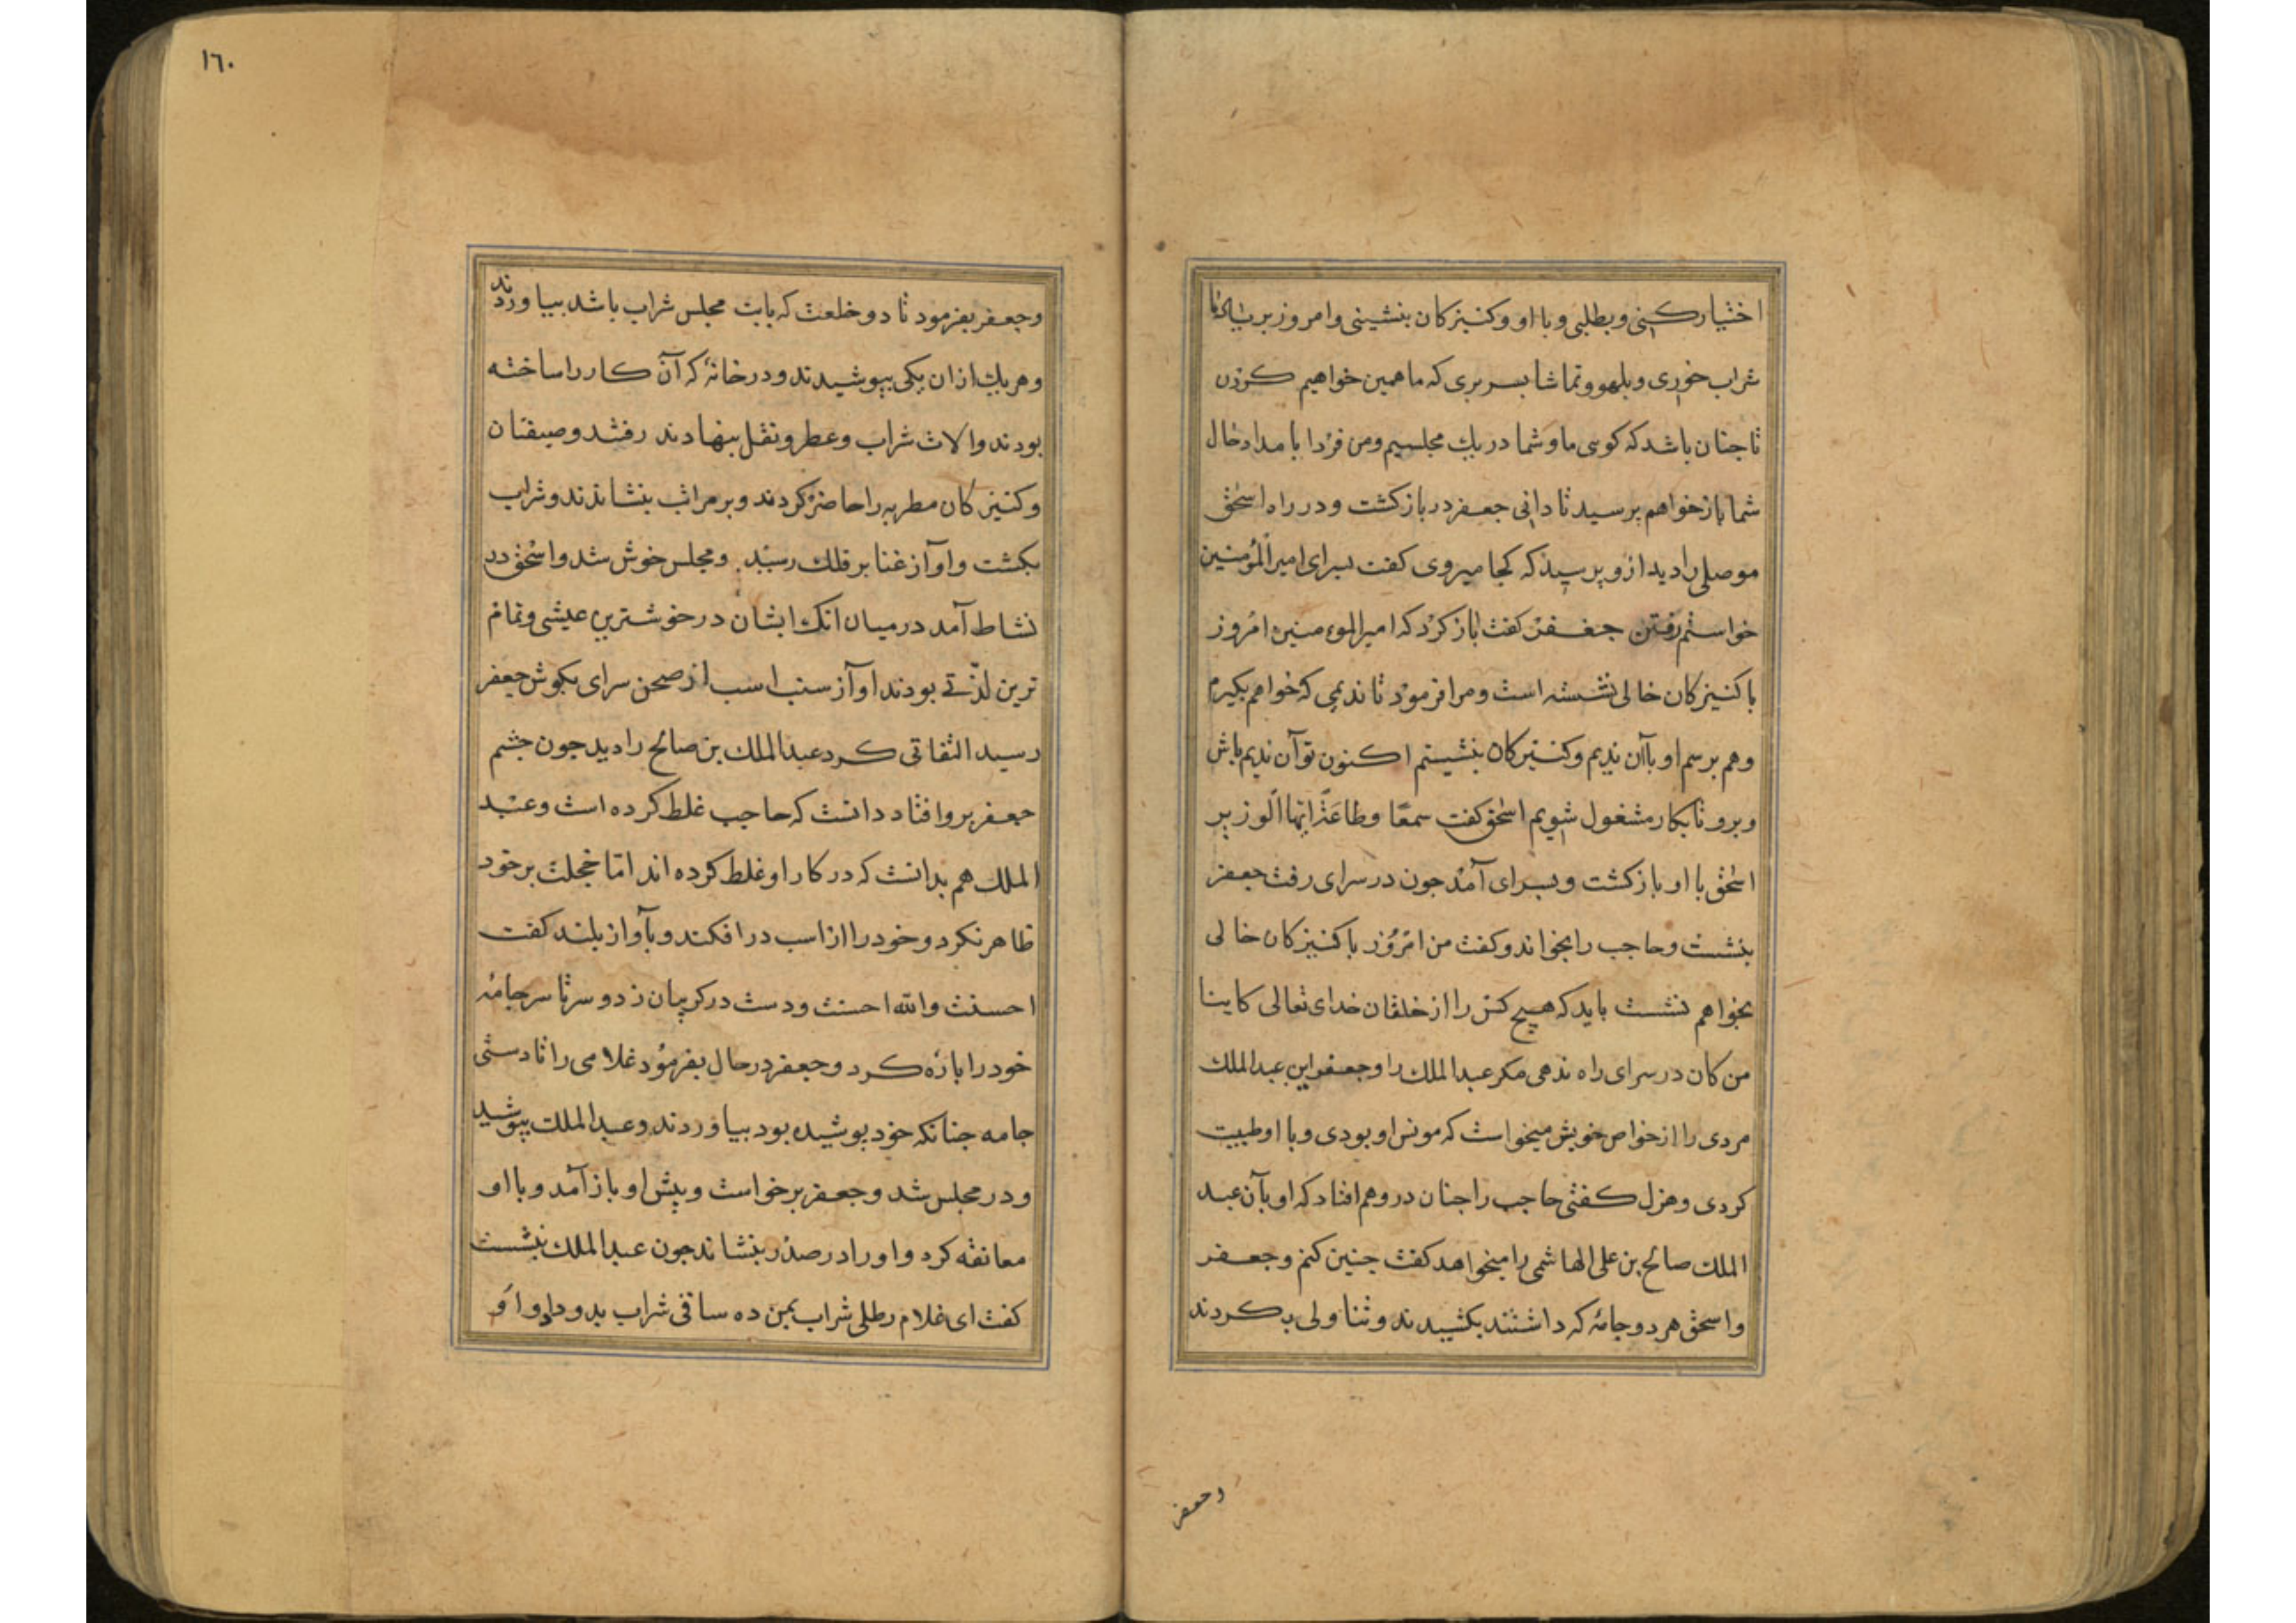 اختیار کنی و بطلبی و با او و کنیزکان بنشینی و امروز بر
شراب خوری و بلهو و تماشا بسر بری که ما همین خواهیم کردن
تا جنان باشد که کوی ما و شما در یک مجلسیم و من فردا بامداد حال
شما باز خواهم برسید تا دانی جعفر در باز کشت و در راه اسحق
موصلی را دید از و پرسید که کجا میروی کفت بسرای امیر المؤمنین
خواستم رفتن جعفر کفت باز کرد که امیر المومنین امروز
با کنیزکان خالی نشسته است و مرا فرمود تا ندیمی که خواهم بکیرم
و هم بر سم او با آن ندیم و کنیزکان بنشینم اکنون تو آن ندیم باش
و برو تا بکار مشغول شویم اسحق کفت سمعًا و طاعةً ایها الوزیر
اسحق با او باز کشت و بسرای آمد جون در سرای رفت جعفر
بنشست و حاجب را بخواند و کفت من امروز با کنیزکان خالی
بخواهم نشست باید که هیچ کس را از خلقان خدای تعالی کاینا
من کان در سرای راه ندهی مکر عبد الملک را و جعفر این عبد الملک
مردی را از خواص خویش میخواست که مونس او بودی و با او طیبت
کردی و هزل کفتی حاجب را جنان در وهم افتاد که او بآن عبد
الملک صالح بن علی الهاشمی را میخواهد کفت جنین کنم و جعفر
و اسحق هر دو جامهٔ که داشتند بکشیدند و تناولی بکردند
وجعفر
١٦٠
و جعفر بفرمود تا دو خلعت که بابت مجلس شراب باشد بیاوردند
و هر یک از ان یکی بپوشیدند و در خانهٔ که آن کار را ساخته
بودند و الات شراب و عطر و نقل بنهادند رفتند و
و کنیزکان مطربه را حاضر کردند و بر مراتب بنشاندند و شراب
بکشت و اواز غنا بر فلک رسید و مجلس خوش شد و اسحق در
نشاط آمد در میان انک ایشان در خوشترین عیشی و تمام
ترین لذّتی بودند اواز سنب اسب از صحن سرای بکوش جعفر
رسید التفاتی کرد عبد الملک بن صالح را دید جون جشم
جعفر برو افتاد دانست که حاجب غلط کرده است و عبد
الملک هم بدانست که در کار او غلط کرده اند اما خجلت بر خود
ظاهر نکرد و خود را از اسب در افکند و بآواز بلند کفت
احسنت والله احسنت و دست در کریبان زد و سر تا سر جامهٔ
خود را باره کرد و جعفر در حال بفرمود غلامی را تا دستی
جامه جنانکه خود بوشیده بود بیاوردند و عبد الملک بپوشید
و در مجلس شد و جعفر برخواست و پیش او باز آمد و با او
معانقه کرد و او را در صدر بنشاند جون عبد الملک بنشست
کفت ای غلام رطلی شراب بمن ده ساقی شراب بدو داد و او